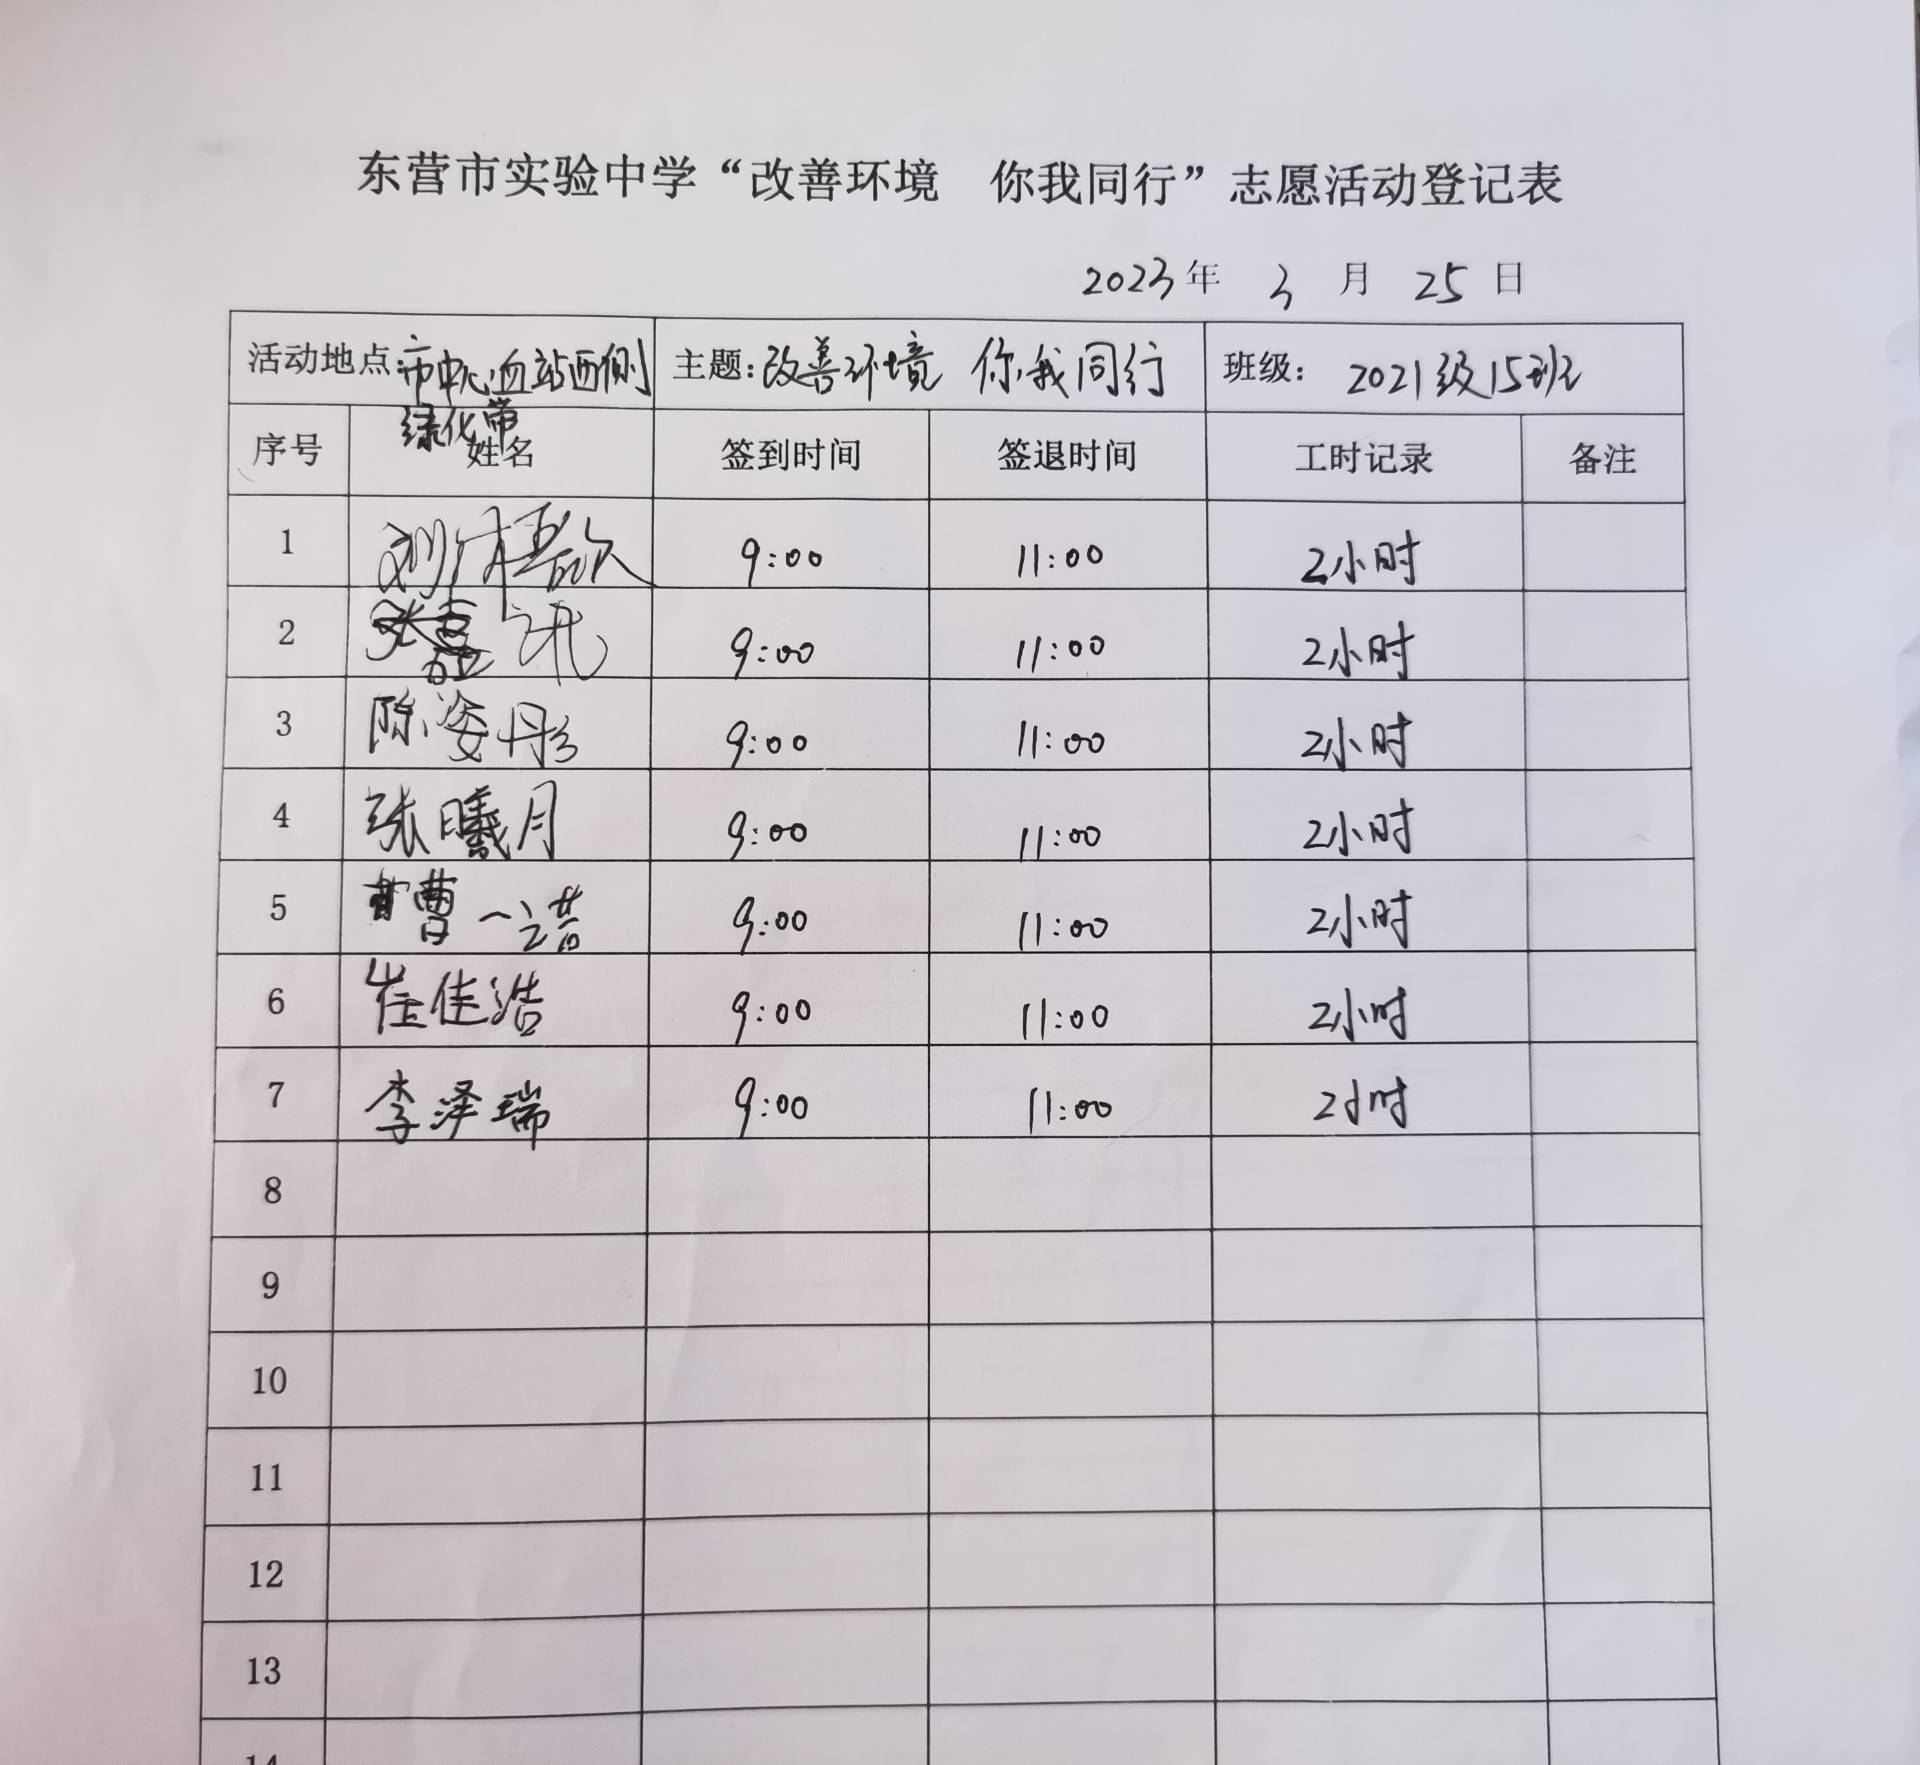 东营市实验中学“改善环境　你我同行”志愿活动登记表
2023年 3 月 25 日
活动地点:市中心血站西侧 主题:改善环境 你我同行 班级: 2021级15班
绿化带
序号 姓名 签到时间 签退时间 工时记录 备注
1 刘 9:00 11:00 2小时
2 9:00 11:00 2小时
3 陈姿彤 9:00 11:00 2小时
4 张曦月 9:00 11:00 2小时
5 曹一诺 9:00 11:00 2小时
6 崔佳浩 9:00 11:00 2小时
7 李泽瑞 9:00 11:00 2小时
8
9
10
11
12
13
14